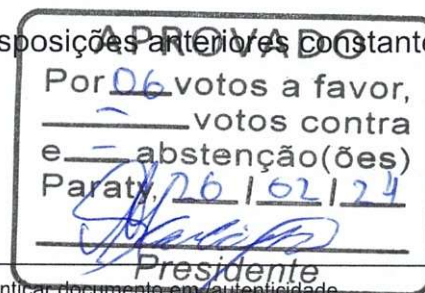 sposições anteriores constante
APROVADO
Por 06 votos a favor,
— votos contra
e — abstenção(ões)
Paraty, 26 / 02 / 24
Presidente
nticar documento em/autenticidade